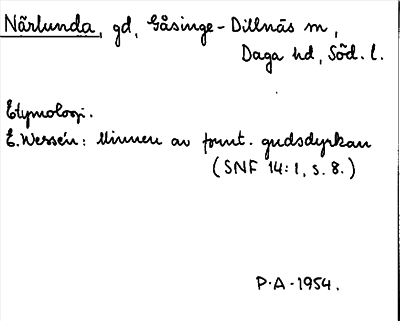 Närlunda, gd, Gåsinge-Dillnäs sn,
Daga hd, Söd. l.
Etymologi.
E. Wessén: Minnen av fornt. gudsdyrkan
(SNF 14:1, s. 8.)
P.A-1954.